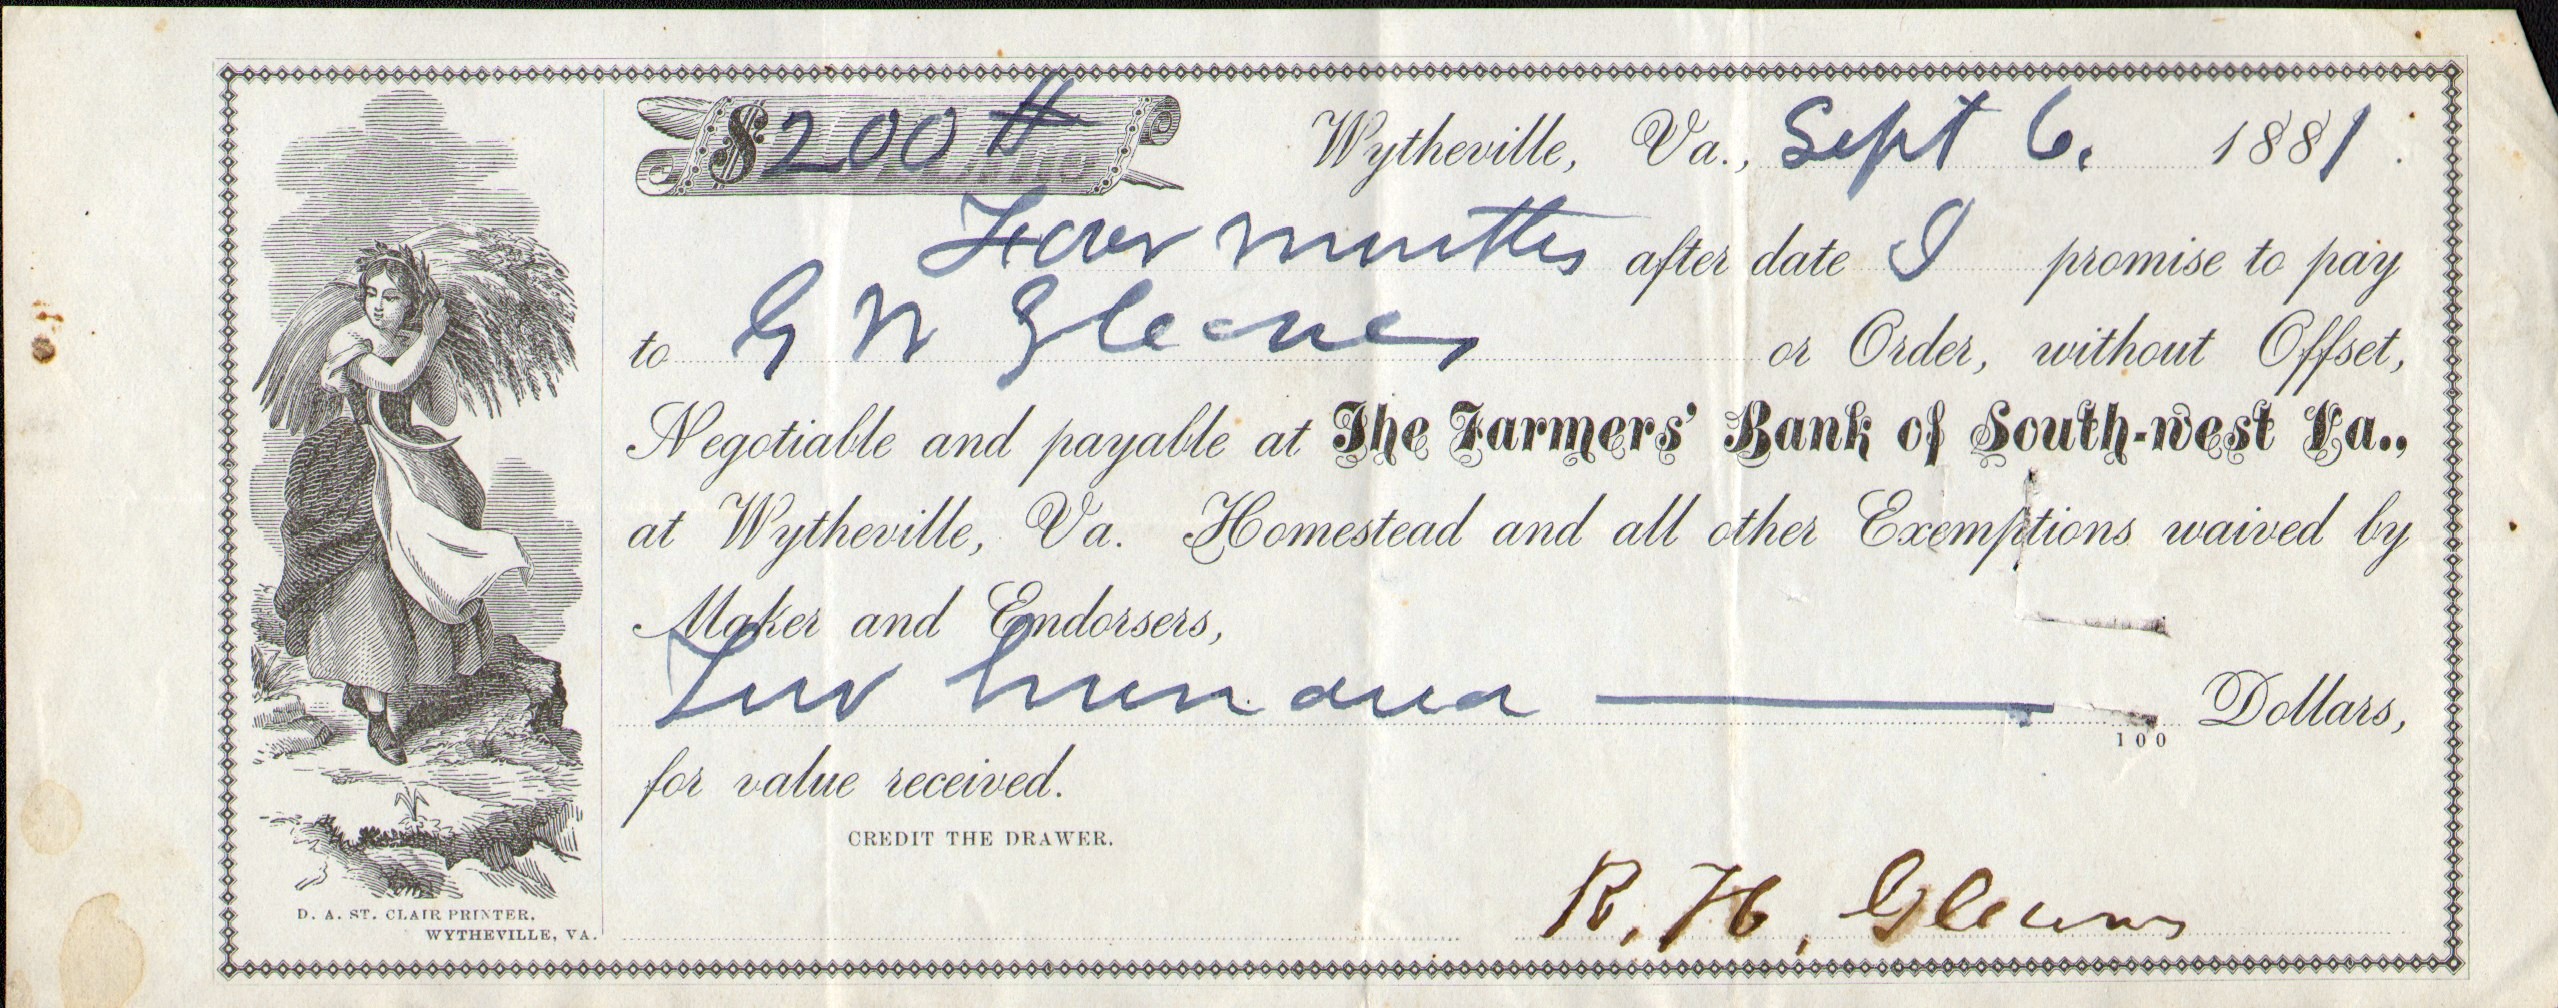 $200 Wytheville, Va., Sept 6. 1881.
Four months after date I promise to pay
to G W Gleaves or Order, without Offset,
Negotiable and payable at The Farmers' Bank of South-west Va.,
at Wytheville, Va. Homestead and all other Exemptions waived by
Maker and Endorsers,
Two hundred 100 Dollars,
for value received.
CREDIT THE DRAWER.
R. H. Gleaves
D. A. ST. CLAIR PRINTER.
WYTHEVILLE, VA.